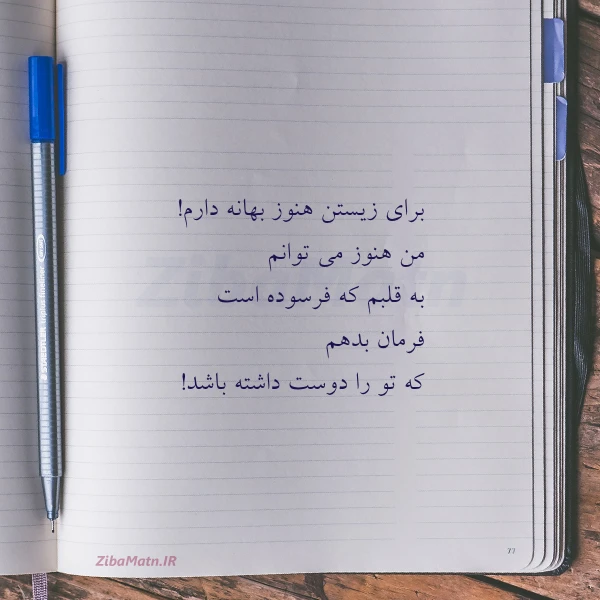 برای زیستن هنوز بهانه دارم!
من هنوز می توانم
به قلبم که فرسوده است
فرمان بدهم
که تو را دوست داشته باشد!
ZibaMatn.IR
ZibaMatn
STAEDTLER triplus fineliner
77